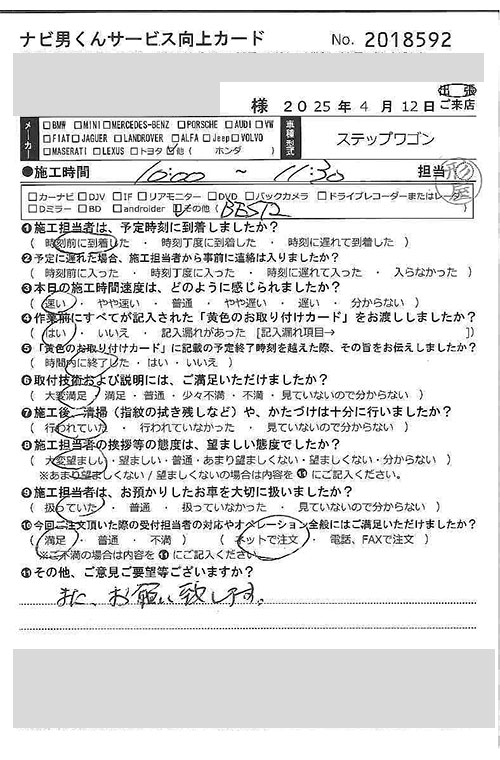 ナビ男くんサービス向上カード No. 2018592
様 2025年 4月 12日 出張 ご来店
メーカー □BMW □MINI □MERCEDES-BENZ □PORSCHE □AUDI □VW 車種型式 ステップワゴン
□FIAT □JAGUER □LANDROVER □ALFA □Jeep □VOLVO
□MASERATI □LEXUS □トヨタ ☑他 ( ホンダ )
●施工時間 10:00 ~ 11:30 担当
□カーナビ □DJV □IF □リアモニター □DVD □バックカメラ □ドライブレコーダーまたはレーダー
□Dミラー □BD □androider ☑その他 ( BB5T2 )
❶施工担当者は、予定時刻に到着しましたか?
( 時刻前に到着した ・ 時刻丁度に到着した ・ 時刻に遅れて到着した )
❷予定に遅れた場合、施工担当者から事前に連絡は入りましたか?
( 時刻前に入った ・ 時刻丁度に入った ・ 時刻に遅れて入った ・ 入らなかった )
❸本日の施工時間速度は、どのように感じられましたか?
( 速い ・ やや速い ・ 普通 ・ やや遅い ・ 遅い ・ 分からない )
❹作業前にすべてが記入された「黄色のお取り付けカード」をお渡ししましたか?
( はい ・ いいえ ・ 記入漏れがあった [記入漏れ項目→ ])
❺「黄色のお取り付けカード」に記載の予定終了時刻を越えた際、その旨をお伝えしましたか?
( 時間内に終了した ・ はい ・ いいえ )
❻取付技術および説明には、ご満足いただけましたか?
( 大変満足 ・ 満足 ・ 普通 ・ 少々不満 ・ 不満 ・ 見ていないので分からない )
❼施工後ご清掃 (指紋の拭き残しなど) や、かたづけは十分に行いましたか?
( 行われていた ・ 行われていなかった ・ 見ていないので分からない )
❽施工担当者の挨拶等の態度は、望ましい態度でしたか?
( 大変望ましい・望ましい・普通・あまり望ましくない・望ましくない・分からない )
※あまり望ましくない / 望ましくないの場合は内容を ⓫ にご記入ください。
❾施工担当者は、お預かりしたお車を大切に扱いましたか?
( 扱っていた ・ 普通 ・ 扱っていなかった ・ 見ていないので分からない )
❿今回ご注文頂いた際の受付担当者の対応やオペレーション全般にはご満足いただけましたか?
( 満足 ・ 普通 ・ 不満 ) ( ネットで注文 ・ 電話、FAXで注文 )
※ご不満の場合は内容を ⓫ にご記入ください。
⓫その他、ご意見ご要望等ございますか?
また、お願い致します。